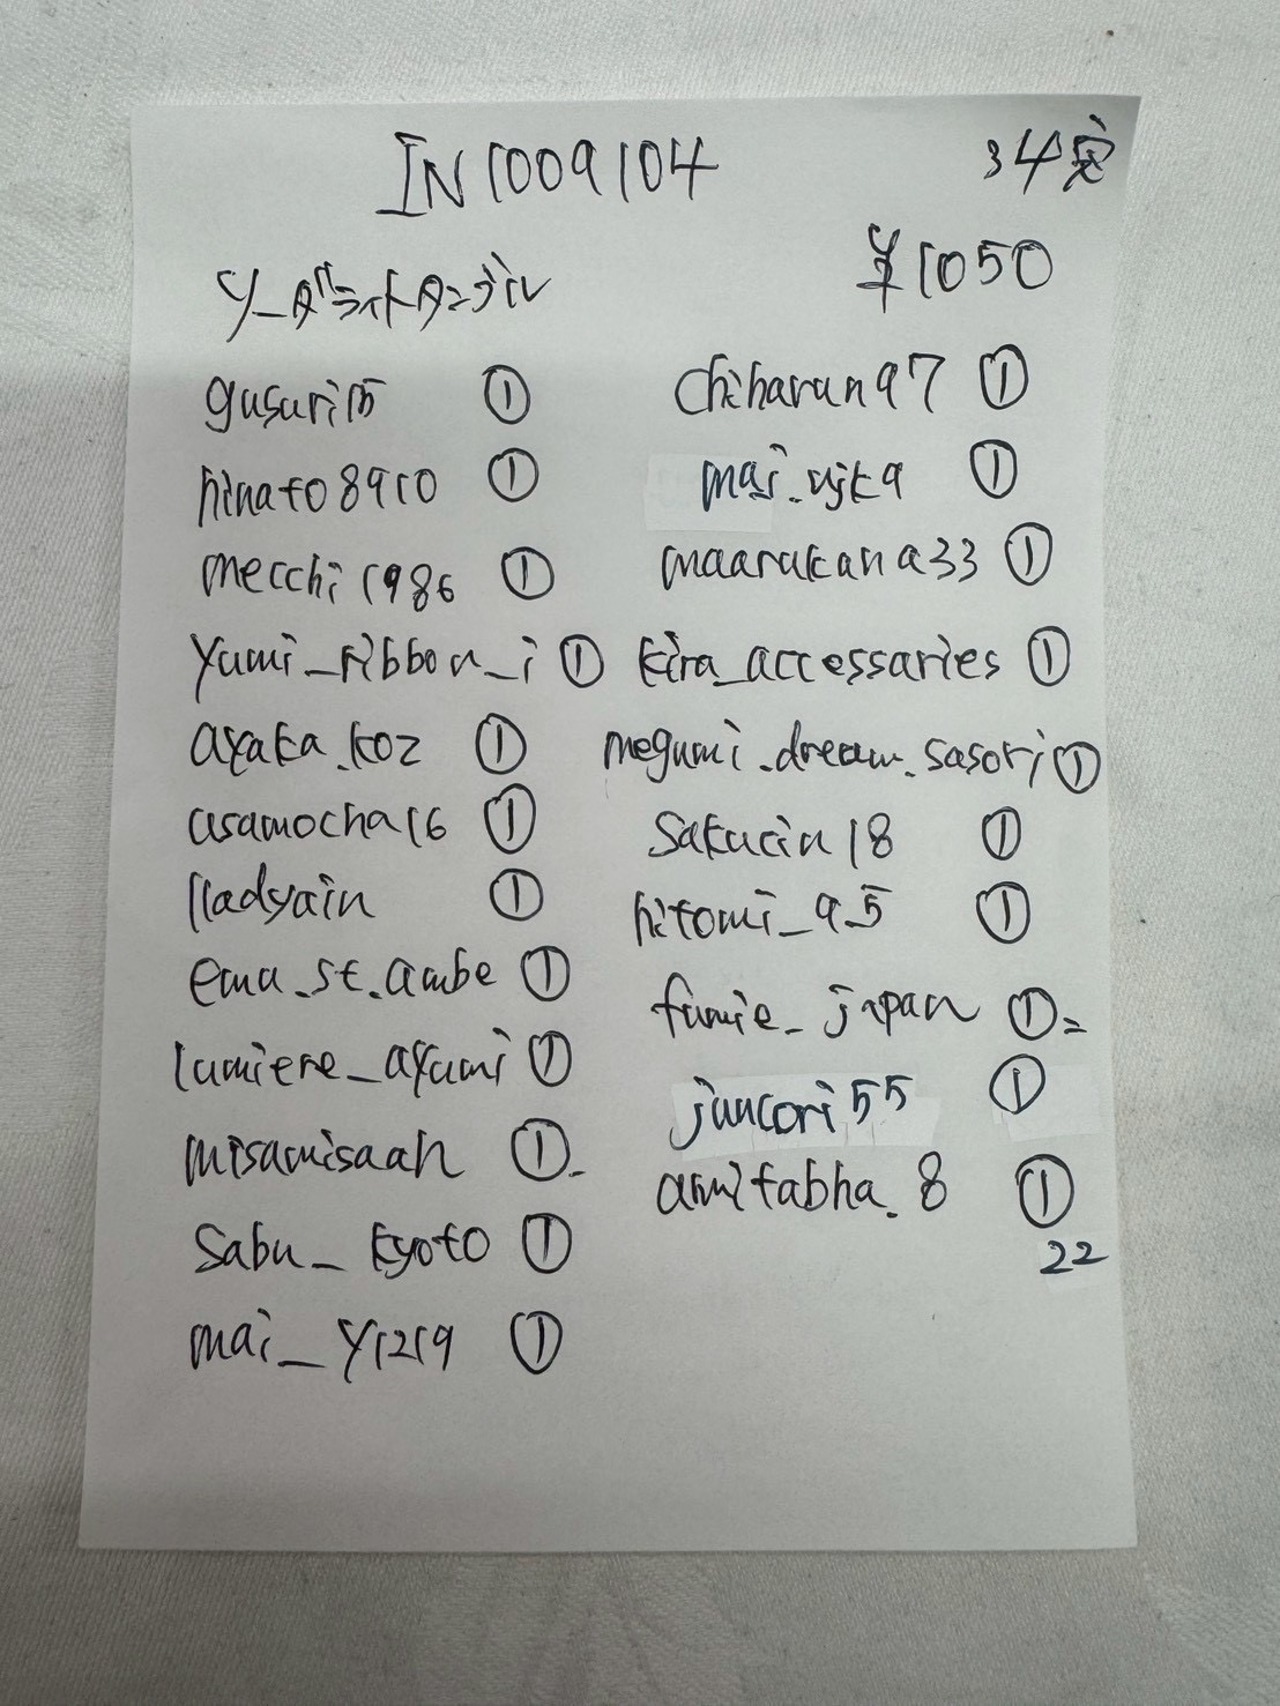 IN1009104
34定
¥1050
ソーダライトタンブル
gusuri15 ①
hinato8910 ①
mecchi1986 ①
yumi_ribbon_i ①
ayaka.koz ①
asamocha16 ①
lladyain ①
ema.st.ambe ①
lumiere_ayumi ①
misamisaah ①
sabu_kyoto ①
mai_y1219 ①
chiharun97 ①
①
maarukana33 ①
kira_accessaries ①
megumi.dream.sasori ①
sakucin18 ①
hitomi_95 ①
fumie_japan ①
juncori55 ①
amitabha.8 ①
22